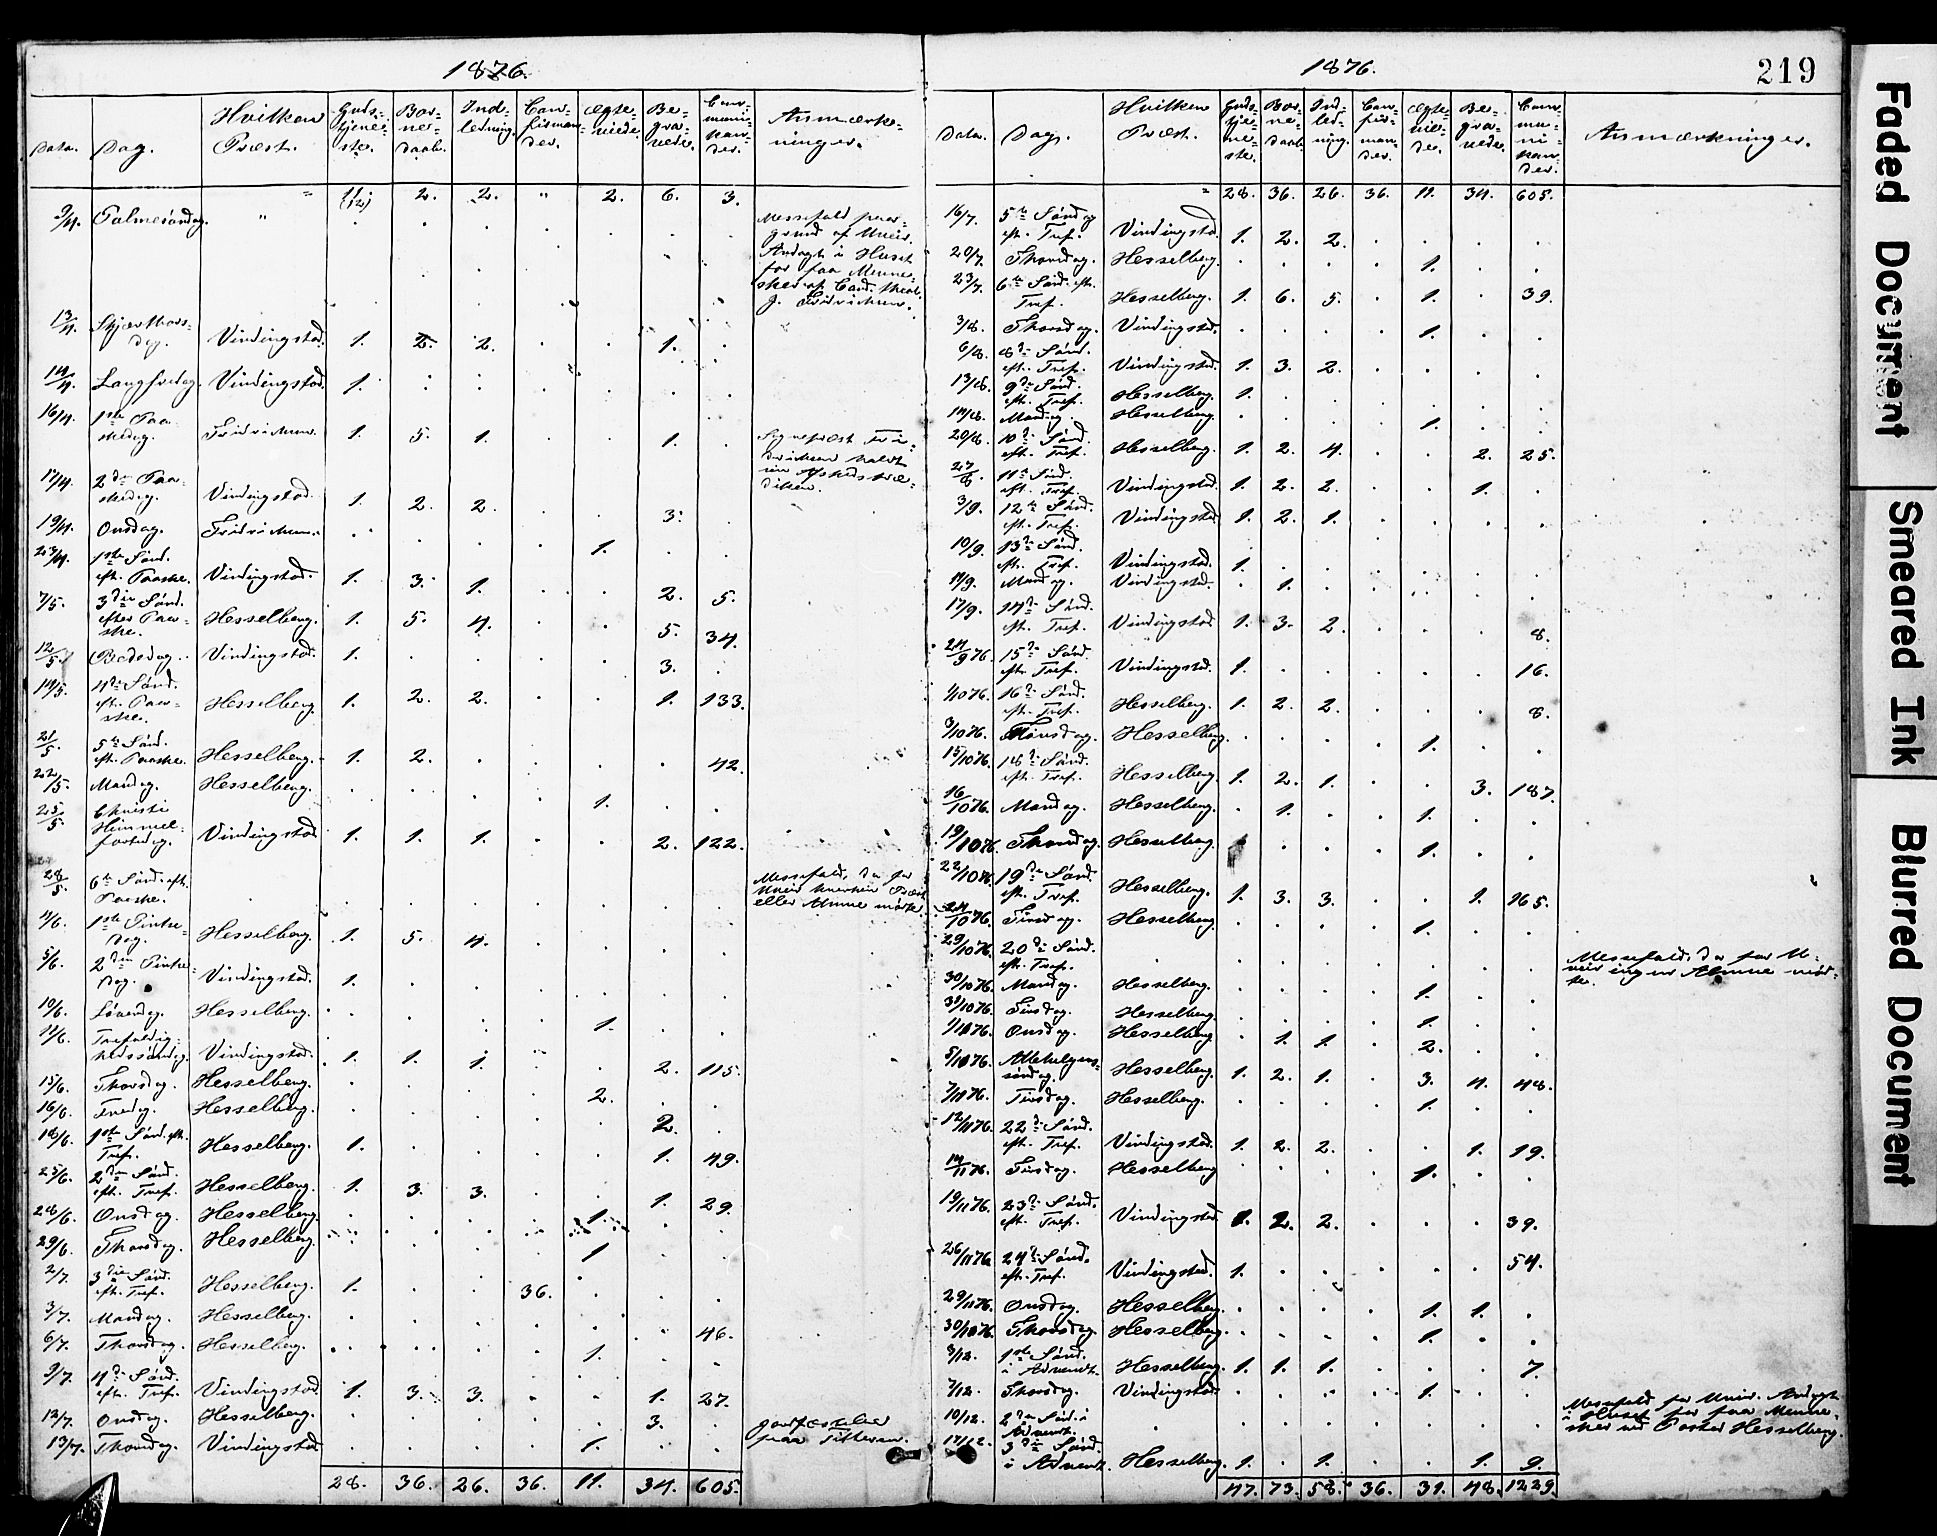 1876.
Data. | Dag. | Hvilken Præst. | Guds-tjenes-ste. | Bar-ne-daab. | Ind-ledning. | Con-firman-der. | Ægte-viede. | Be-gra-vede. | Com-muni-kan-der. | Anmærk-ninger.
" | 2. | 2. | " | 2. | 6. | 3.
9/4. Palmesöndag. " Messefald paa
grund af Uveir.
Andagt i Huset
for faa Menne-
sker af Cand. theol.
13/4. Skjærthors-
dag. Vindingstad. 1. 2. 2. . . 1. .
14/4. Langfredag. Vindingstad. 1. . . . . . .
16/4. 1ste Paa-
skedag. Fridrichsen. 1. 5. 1. . . 1. .
17/4. 2den Paa-
skedag. Vindingstad. 1. 2. 2. . . 3. .
19/4. Onsdag. Fridrichsen. . . . . 1. . .
23/4. 1ste Sönd.
eft. Paaske. Vindingstad. 1. 3. 1. . . 2. 5.
7/5. 3die Sönd.
efter Paa-
ske. Hesselberg. 1. 5. 4. . . 5. 34.
12/5. Bededag. Vindingstad. 1. . . . . 3. .
14/5. 4de Sönd.
eft. Paa-
ske. Hesselberg. 1. 2. 2. . . 1. 133.
21/5. 5te Sönd.
eft. Paaske. Hesselberg. 1. 2. . . . . 42.
22/5. Mandag. Hesselberg. . . . . 1. . .
25/5. Christi
Himmel-
fartsdag. Vindingstad. 1. 1. 1. . . 2. 122.
28/5. 6te Sönd. eft.
Paaske. . . . . . . . Messefald, da for
Uveir hverken Præst
eller Almue mötte.
4/6. 1ste Pintse-
dag. Hesselberg. 1. 5. 4. . . . .
5/6. 2den Pintse-
dag. Vindingstad. 1. . . . . . .
10/6. Löverdag. Hesselberg. . . . . 1. . .
11/6. Trefoldig-
hedssöndag. Vindingstad. 1. 1. 1. . . 2. 115.
15/6. Thorsdag. Hesselberg. . . . . 2. . .
16/6. Fredag. Hesselberg. . . . . . 2. .
18/6. 1ste Sönd. eft.
Tref. Hesselberg. 1. . . . . 1. 49.
25/6. 2den Sönd.
eft. Tref. Hesselberg. 1. 3. 3. . . 1. 29.
28/6. Onsdag. Hesselberg. . . . . 1. . .
29/6. Thorsdag. Hesselberg. . . . . 1. . .
2/7. 3die Sönd.
eft. Tref. Hesselberg. 1. . . 36. . . .
3/7. Mandag. Hesselberg. . . . . . . 46.
6/7. Thorsdag. Hesselberg. . . . . 1. . .
9/7. 4de Sönd.
eft. Tref. Vindingstad. 1. 3. 3. . . 1. 27.
12/7. Onsdag. Hesselberg. . . . . . 3. .
13/7. Thorsdag. Vindingstad. . . . . 1. . .
28. 36. 26. 36. 11. 34. 605.
1876.
219
Data. | Dag. | Hvilken Præst. | Guds-tje-ne-ste. | Bar-ne-daab. | Ind-led-ning. | Con-fir-man-der. | Ægte-vie-de. | Be-gra-vede. | Com-mu-ni-kan-der. | Anmærkninger.
" 28. 36. 26. 36. 11. 34. 605.
16/7. 5te Söndag
eft. Tref. Vindingstad. 1. 2. 2. . . . .
20/7. Thorsdag. Hesselberg. . . . . 1. . .
23/7. 6te Sönd. eft.
Tref. Hesselberg. 1. 6. 5. . 1. . 39.
3/8. Thorsdag. Vindingstad. . . . . 1. . .
6/8. 8de Sönd.
eft. Tref. Vindingstad. 1. 3. 2. . . . .
13/8. 9de Sönd.
eft. Tref. Hesselberg. 1. . . . . . .
14/8. Mandag. Hesselberg. . . . . 1. . .
20/8. 10de Sönd.
eft. Tref. Hesselberg. 1. 2. 4. . . 2. 25.
27/8. 11te Sönd.
eft. Tref. Vindingstad. 1. 2. 2. . . 1. .
3/9. 12te Sönd.
eft. Tref. Vindingstad. 1. 2. 1. . . . .
10/9. 13de Sönd.
eft. Tref. Vindingstad. 1. . . . . . .
11/9. Mandag. Vindingstad. . 1. . . . . .
17/9. 14de Sönd.
eft. Tref. Vindingstad. 1. 3. 2. . . . 8.
24/9 76. 15de Sönd.
eft. Tref. Vindingstad. 1. . . . . . 16.
1/10 76. 16de Sönd.
eft. Tref. Hesselberg. 1. 2. 2. . . . 8.
3/10 76. Tirsdag. Hesselberg. . . . . 1. . .
15/10 76. 18de Sönd.
eft. Tref. Hesselberg. 1. 2. 1. . . 3. 187.
16/10 76. Mandag. Hesselberg. . 1. . . 1. . .
19/10 76. Thorsdag. Hesselberg. . . . . 1. . .
22/10 76. 19de Sönd.
eft. Tref. Hesselberg. 1. 3. 3. . . 1. 165.
24/10 76. Tirsdag. Hesselberg. . . . . 1. . .
29/10 76. 20de Sönd.
eft. Tref. . . . . . . . Messefald, da for U-
veir ingen Almue möd-
te.
30/10 76. Mandag. Hesselberg. . . . . 1. . .
31/10 76. Tirsdag. Hesselberg. . . . . 1. . .
1/11 76. Onsdag. Hesselberg. . 1. 1. . 2. . .
5/11 76. Allehelgens-
söndag. Hesselberg. 1. 2. 1. . 3. 4. 48.
7/11 76. Tirsdag. Hesselberg. . . . . 1. . .
12/11 76. 22de Sönd.
eft. Tref. Vindingstad. 1. 2. 2. . . 1. 19.
14/11 76. Tirsdag. Hesselberg. . . . . 1. . .
19/11 76. 23de Sönd.
eft. Tref. Vindingstad. 1. 2. 2. . . . 39.
26/11 76. 24de Sönd.
eft. Tref. Vindingstad. 1. . . . . . 54.
29/11 76. Onsdag. Hesselberg. . . . . 1. 1. .
30/10 76. Thorsdag. Hesselberg. . . . . 1. . .
3/12. 1ste Sönd.
i Advendt. Hesselberg. 1. 1. 1. . . . 7.
7/12. Thorsdag. Vindingstad. . . . . 1. . .
10/12. 2den Sönd. i
Advendt. . . . . . . . Messefald for Uveir. Andagt
i Huset for faa Menne-
sker ved Pastor Hesselberg.
17/12. 3die Sönd.
i Advendt. Hesselberg. 1. . 1. . . 1. 9.
47. 73. 58. 36. 31. 48. 1229.
Faded Document
Smeared Ink
Blurred Document